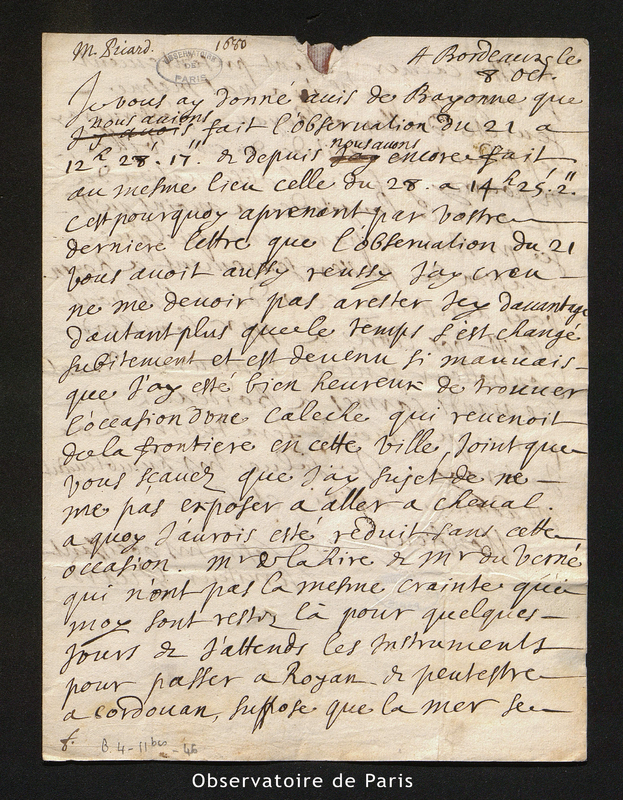 M. Picard. 1680
OBSERVATOIRE DE PARIS
A Bordeaux le
8 Oct.
Je vous ay donné auis de Bayonne que
nous auions
J'y auois fait l'observation du 21 a
12h 28' 17" & depuis nous auons J'ay encore fait
au mesme lieu celle du 28. a 14h 25' 2"
c'est pourquoy aprenant par vostre
derniere lettre que l'observation du 21
vous auoit aussy reussy J'ay creu
ne me deuoir pas arester Icy dauantage
dautant plus que le temps s'est changé
subitement et est deuenu si mauuais
que J'ay esté bien heureux de trouuer
l'occasion d'une caleche qui reuenoit
de la frontiere en cette ville, Joint que
vous scauez que J'ay sujet de ne
me pas exposer a aller a cheual.
a quoy J'aurois esté reduit sans cette
occasion. Mr de la Hire & Mr du Verné
qui n'ont pas la mesme crainte que
moy sont restez là pour quelques
Jours & J'attends les Instruments
pour passer a Royan & peutestre
a cordouan, suppose que la mer se
f. B 4-11 bis - 46
Observatoire de Paris